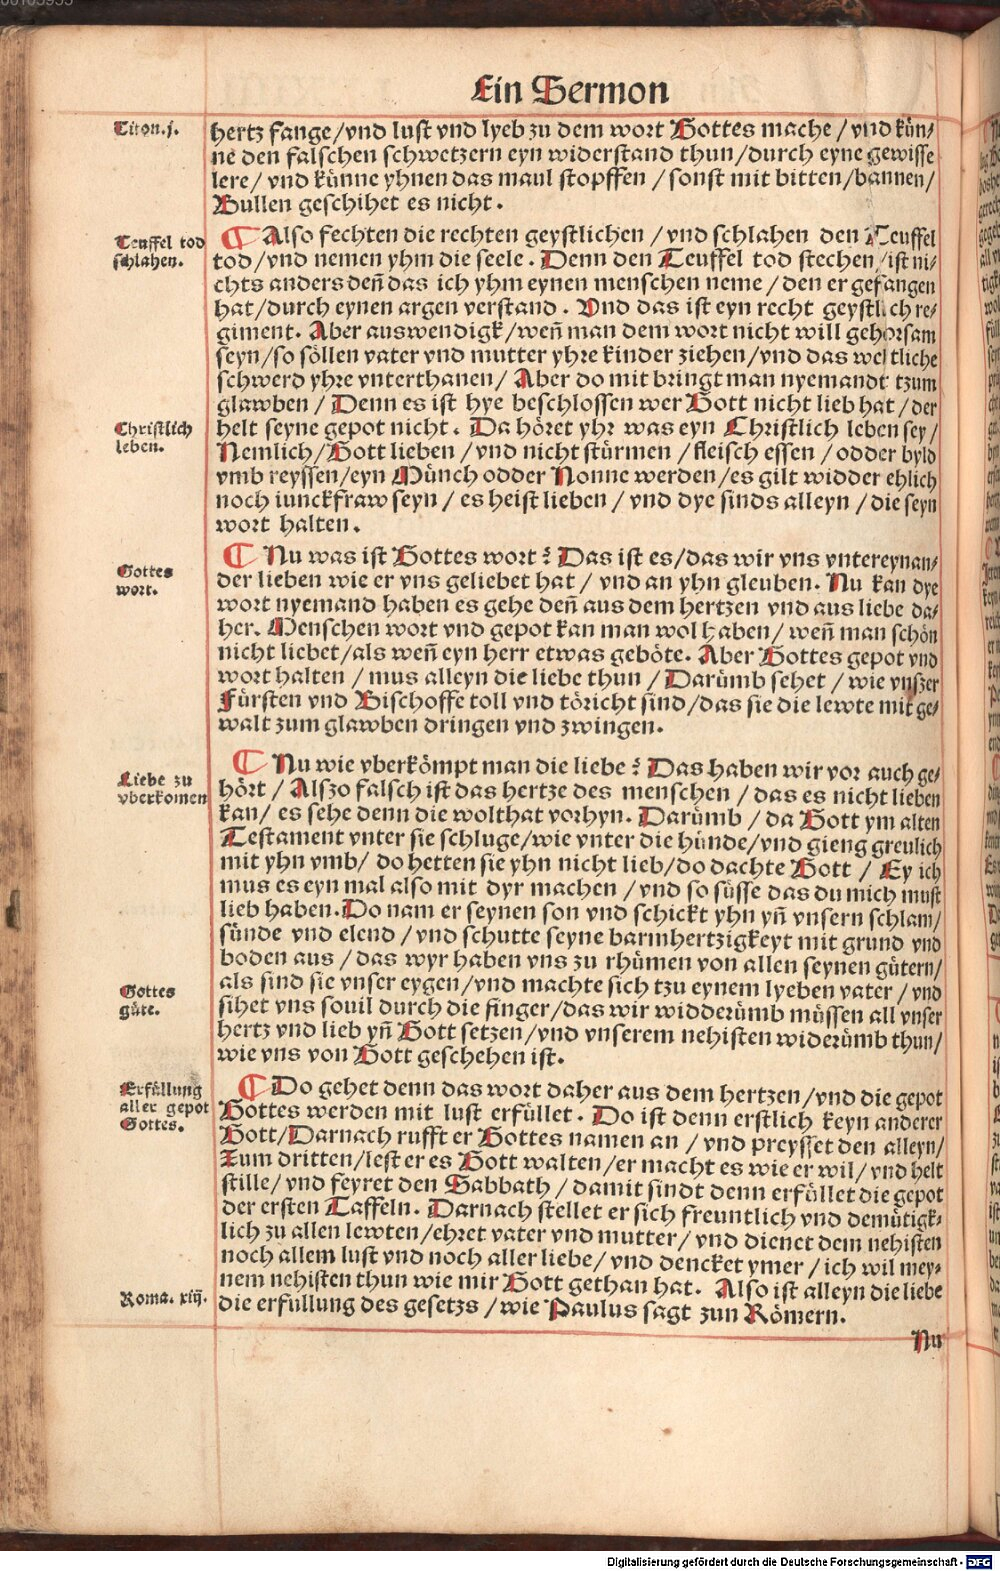 Ein Sermon
Titon. j.
hertz fange/vnd lust vnd lyeb zu dem wort Gottes mache/vnd kün⸗
ne den falschen schwetzern eyn widerstand thun/durch eyne gewisse
lere/ vnd künne yhnen das maul stopffen/sonst mit bitten/bannen/
Bullen geschihet es nicht.
Teuffel tod
schlahen.
¶ Also fechten die rechten geystlichen/vnd schlahen den Teuffel
tod/vnd nemen yhm die seele. Denn den Teuffel tod stechen/ist ni⸗
chts anders deñ das ich yhm eynen menschen neme/den er gefangen
hat/durch eynen argen verstand. Vnd das ist eyn recht geystlich re⸗
giment. Aber auswendigk/weñ man dem wort nicht will gehorsam
seyn/so söllen vater vnd mutter yhre kinder ziehen/vnd das weltliche
schwerd yhre vnterthanen/ Aber do mit bringt man nyemandt tzum
glawben/ Denn es ist hye beschlossen wer Gott nicht lieb hat/der
Christlich
leben.
helt seyne gepot nicht. Da höret yhr was eyn Christlich leben sey/
Nemlich/Gott lieben/vnd nicht stürmen/fleisch essen/odder byld
vmb reyssen/eyn Münch odder Nonne werden/es gilt widder ehlich
noch iunckfraw seyn/es heist lieben/vnd dye sinds alleyn/die seyn
wort halten.
Gottes
wort.
¶ Nu was ist Gottes wort? Das ist es/das wir vns vntereynan⸗
der lieben wie er vns geliebet hat/vnd an yhn gleuben. Nu kan dye
wort nyemand haben es gehe deñ aus dem hertzen vnd aus liebe da⸗
her. Menschen wort vnd gepot kan man wol haben/weñ man schön
nicht liebet/als weñ eyn herr etwas geböte. Aber Gottes gepot vnd
wort halten/mus alleyn die liebe thun/Darümb sehet/wie vnszer
Fürsten vnd Bischoffe toll vnd töricht sind/das sie die lewte mit ge⸗
walt zum glawben dringen vnd zwingen.
Liebe zu
vberkomen
¶ Nu wie vberkömpt man die liebe? Das haben wir vor auch ge⸗
hört/Alszo falsch ist das hertze des menschen/das es nicht lieben
kan/ es sehe denn die wolthat vorhyn. Darümb/da Gott ym alten
Testament vnter sie schluge/wie vnter die hünde/vnd gieng greulich
mit yhn vmb/ do hetten sie yhn nicht lieb/do dachte Gott/Ey ich
mus es eyn mal also mit dyr machen/vnd so süsse das du mich must
lieb haben. Do nam er seynen son vnd schickt yhn yñ vnsern schlam/
sünde vnd elend/vnd schutte seyne barmhertzigkeyt mit grund vnd
boden aus/das wyr haben vns zu rhümen von allen seynen gütern/
Gottes
güte.
als sind sie vnser eygen/vnd machte sich tzu eynem lyeben vater/vnd
sihet vns souil durch die finger/das wir widderümb müssen all vnser
hertz vnd lieb yñ Gott setzen/vnd vnserem nehisten widerümb thun/
wie vns von Gott geschehen ist.
Erfüllung
aller gepot
Gottes.
¶ Do gehet denn das wort daher aus dem hertzen/vnd die gepot
Gottes werden mit lust erfüllet. Do ist denn erstlich keyn anderer
Gott/Darnach rufft er Gottes namen an/vnd preysset den alleyn/
Zum dritten/lest er es Gott walten/er macht es wie er wil/vnd helt
stille/vnd feyret den Sabbath/damit sindt denn erfüllet die gepot
der ersten Taffeln. Darnach stellet er sich freuntlich vnd demütigk⸗
lich zu allen lewten/ehret vater vnd mutter/vnd dienet dem nehisten
noch allem lust vnd noch aller liebe/vnd dencket ymer/ich wil mey⸗
nem nehisten thun wie mir Gott gethan hat. Also ist alleyn die liebe
Roma. xiij.
die erfullung des gesetzs/wie Paulus sagt zun Römern.
Nu
Digitalisierung gefördert durch die Deutsche Forschungsgemeinschaft - DFG